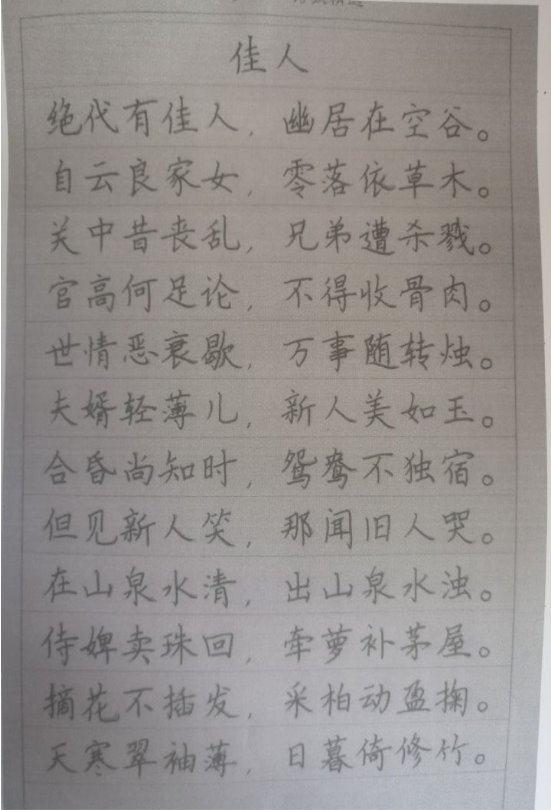 佳人
绝代有佳人，幽居在空谷。
自云良家女，零落依草木。
关中昔丧乱，兄弟遭杀戮。
官高何足论，不得收骨肉。
世情恶衰歇，万事随转烛。
夫婿轻薄儿，新人美如玉。
合昏尚知时，鸳鸯不独宿。
但见新人笑，那闻旧人哭。
在山泉水清，出山泉水浊。
侍婢卖珠回，牵萝补茅屋。
摘花不插发，采柏动盈掬。
天寒翠袖薄，日暮倚修竹。